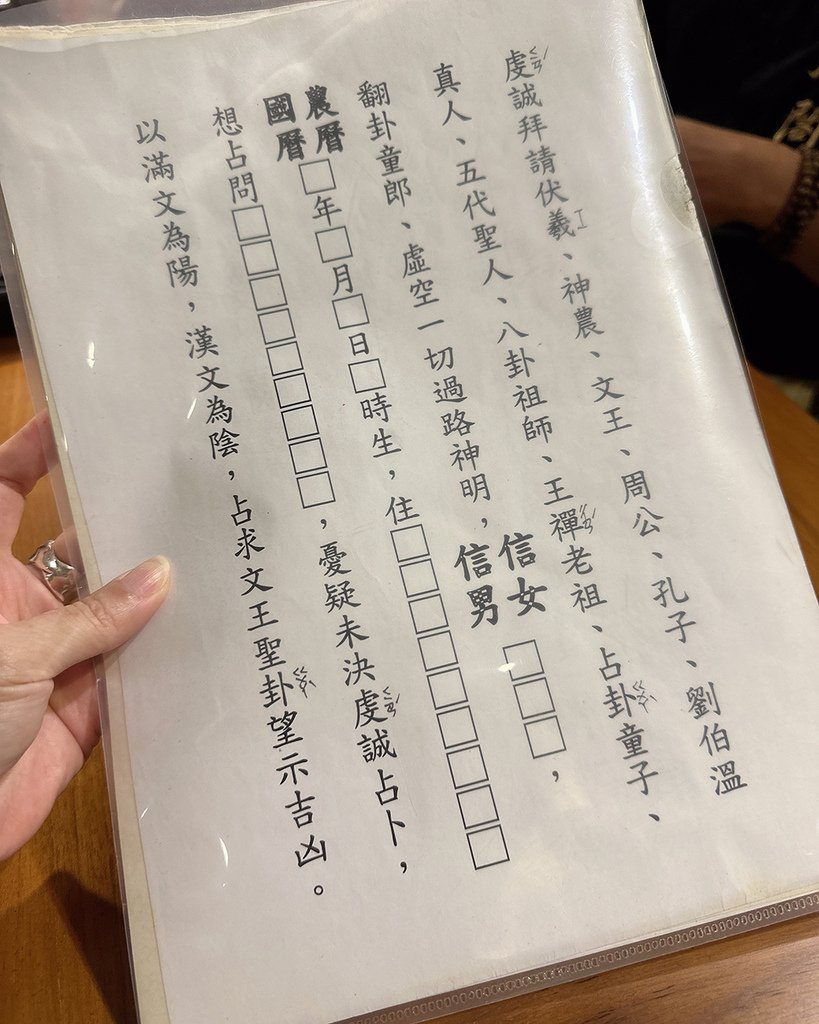 虔誠拜請伏羲、神農、文王、周公、孔子、劉伯溫
真人、五代聖人、八卦祖師、王禪老祖、占卦童子、
翻卦童郎、虛空一切過路神明，信女信男□□□，
農曆國曆□年□月□日□時生，住□□□□□□□□□
想占問□□□□□□□□□，憂疑未決虔誠占卜，
以滿文為陽，漢文為陰，占求文王聖卦望示吉凶。